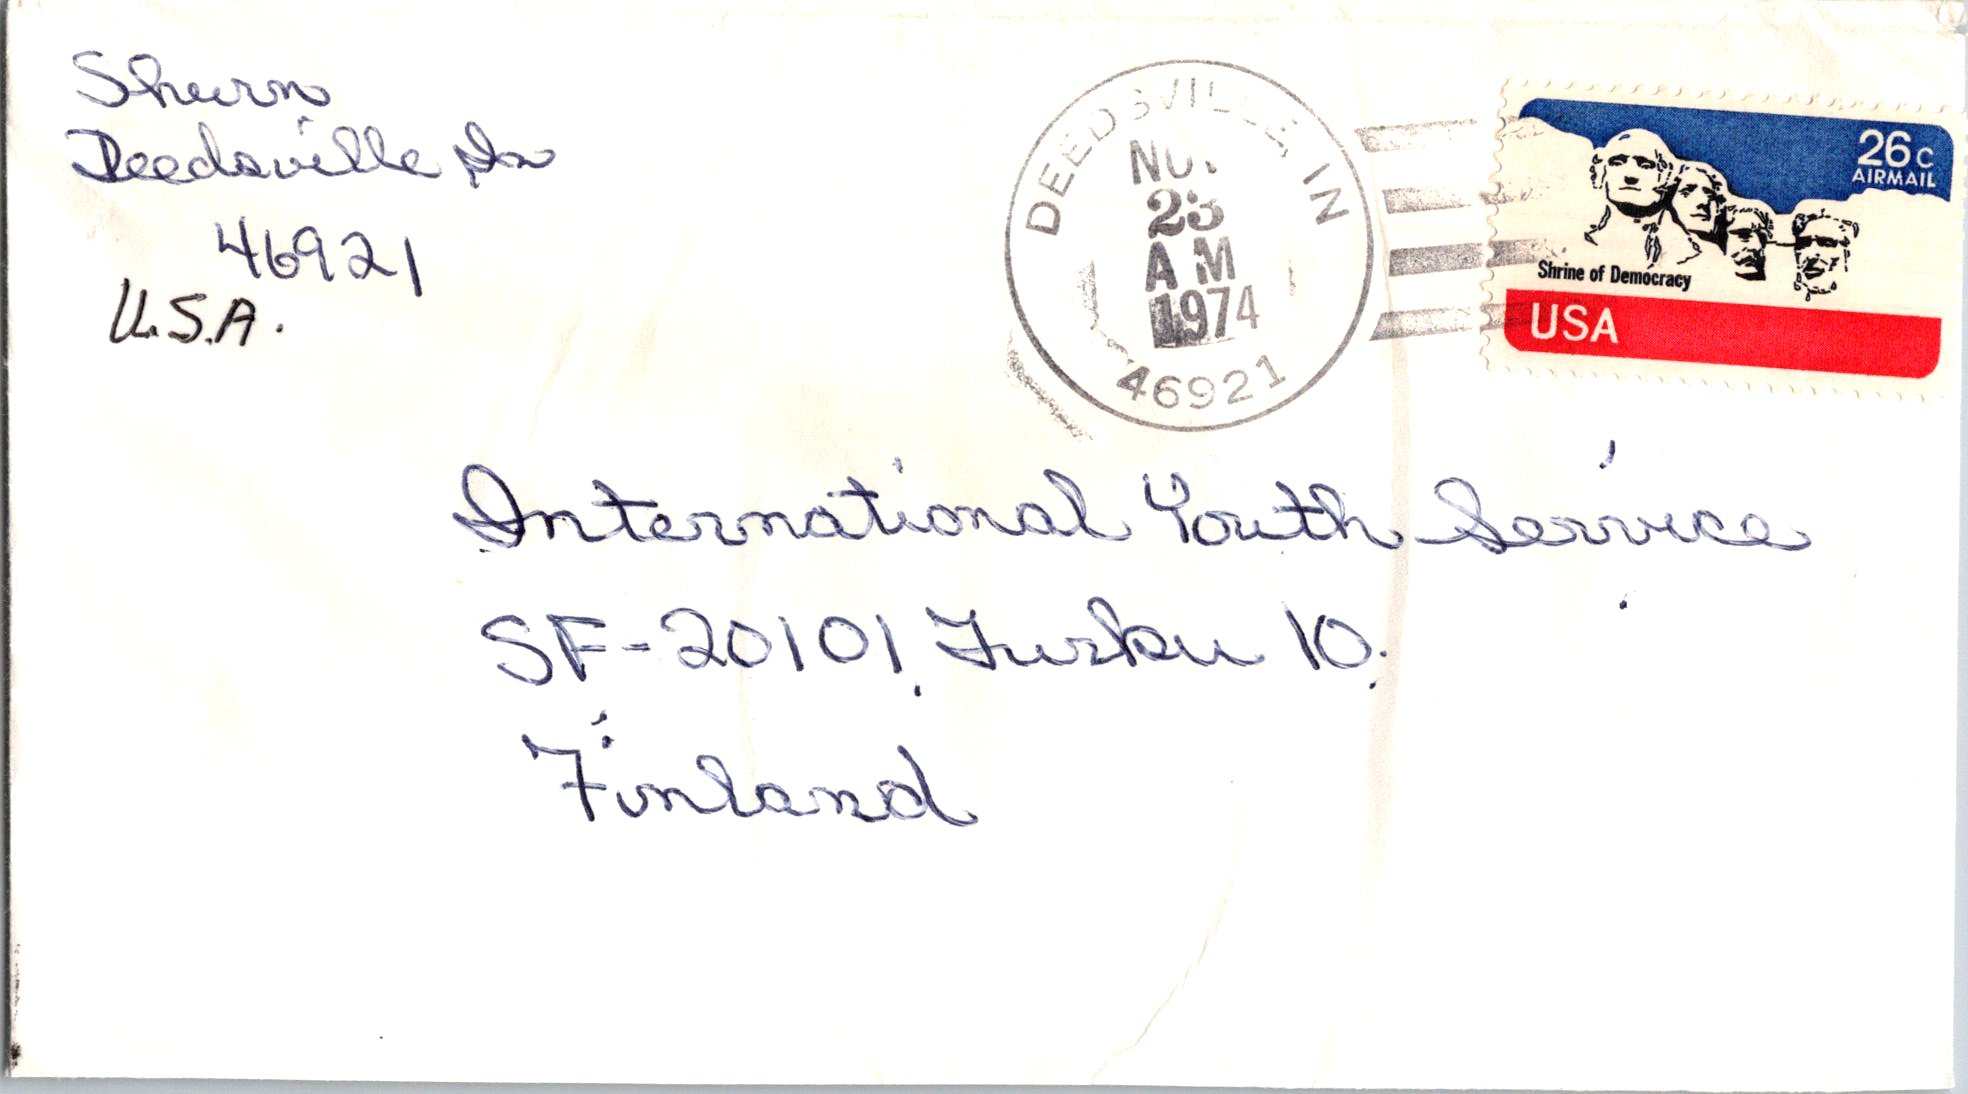 Deedsville In
46921
U.S.A.
DEEDSVILLE, IN
23
AM
1974
46921
26c
AIRMAIL
Shrine of Democracy
USA
International Youth Service
SF-20101, Turku 10.
Finland